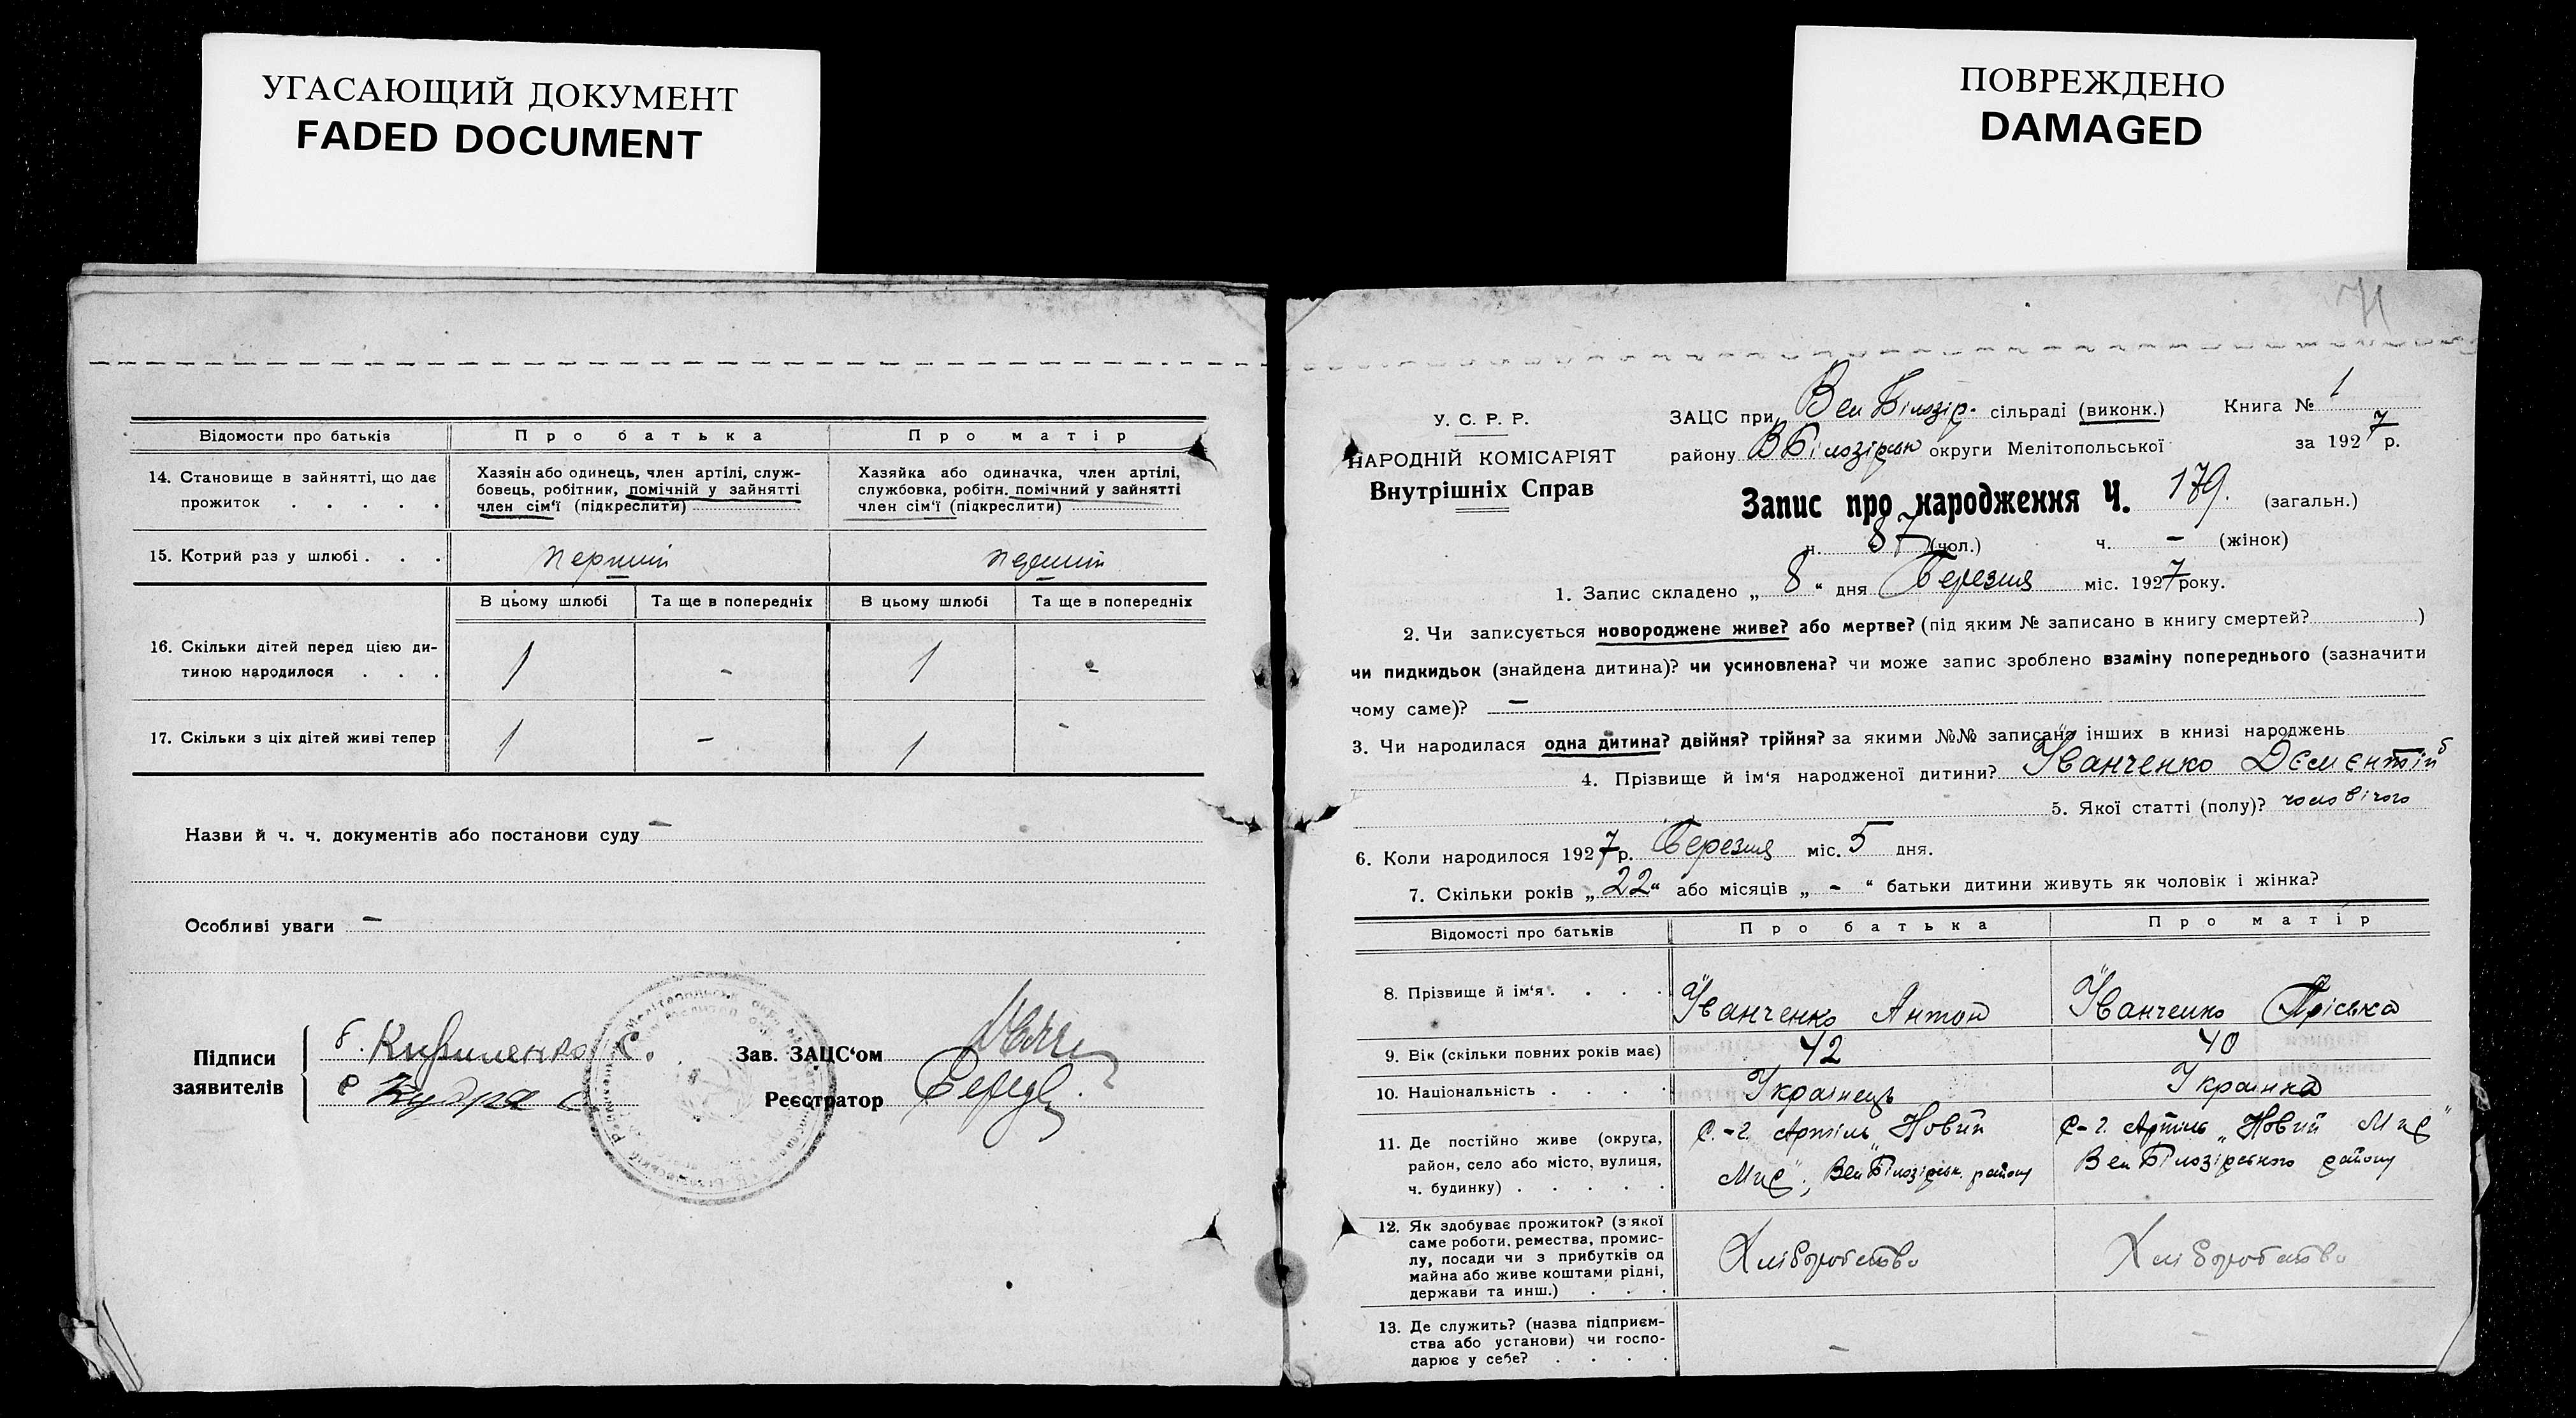 УГАСАЮЩИЙ ДОКУМЕНТ
FADED DOCUMENT
ПОВРЕЖДЕНО
DAMAGED
Відомости про батьків Про батька Про матір
14. Становище в зайнятті, що дає
прожиток . . . . .
Хазяін або одинець, член артілі, служ-
бовець, робітник, помічній у зайнятті
член сім‘ї (підкреслити)
Хазяйка або одиначка, член артілі,
службовка, робітн. помічний у зайнятті
член сім‘ї (підкреслити)
15. Котрий раз у шлюбі . . . перший перший
В цьому шлюбі Та ще в попередніх В цьому шлюбі Та ще в попередніх
16. Скільки дітей перед цією ди-
тиною народилося . . . 1 - 1 -
17. Скільки з ціх дітей живі тепер 1 - 1 -
Назви й ч. ч. документів або постанови суду —
Особливі уваги —
Підписи
заявителів
Кириленко С.
Кудра
Зав. ЗАЦС‘ом
Реєстратор
71
У. С. Р. Р.
НАРОДНІЙ КОМІСАРІЯТ
Внутрішніх Справ
ЗАЦС при Вел Білозір. сільраді (виконк.) Книга № 1
району В Білозірськ округи Мелітопольської за 1927 р.
Запис про народження Ч. 179. (загальн.)
ч. 87 (чол.) ч. — (жінок)
1. Запис складено „ 8 “ дня Березня міс. 1927 року.
2. Чи записується новороджене живе? або мертве? (під яким № записано в книгу смертей? )
чи пидкидьок (знайдена дитина)? чи усиновлена? чи може запис зроблено взаміну попереднього (зазначити
чому саме)? —
3. Чи народилася одна дитина? двійня? трійня? за якими №№ записано інших в книзі народжень
4. Прізвище й ім‘я народженої дитини? Іванченко Дємєнтій
5. Якої статті (полу)? чоловічого
6. Коли народилося 1927 р. Березня міс. 5 дня.
7. Скільки років „ 22 “ або місяців „ - “ батьки дитини живуть як чоловік і жінка?
Відомості про батьків Про батька Про матір
8. Прізвище й ім‘я . . . . Іванченко Антон Іванченко Пріська
9. Вік (скільки повних років має) 42 40
10. Національність . . . . Українець Українка
11. Де постійно живе (округа,
район, село або місто, вулиця,
ч. будинку) . . . . .
С.-г. Артіль „Новий
Мир“, Вел Білозірськ. району
С-г. Артіль „Новий Мир“
Вел Білозірського району
12. Як здобуває прожиток? (з якої
саме роботи, ремества, промис-
лу, посади чи з прибутків од
майна або живе коштами рідні,
держави та инш.) . . .
Хліборобство Хліборобство
13. Де служить? (назва підприєм-
ства або установи) чи госпо-
дарює у себе? . . . . —